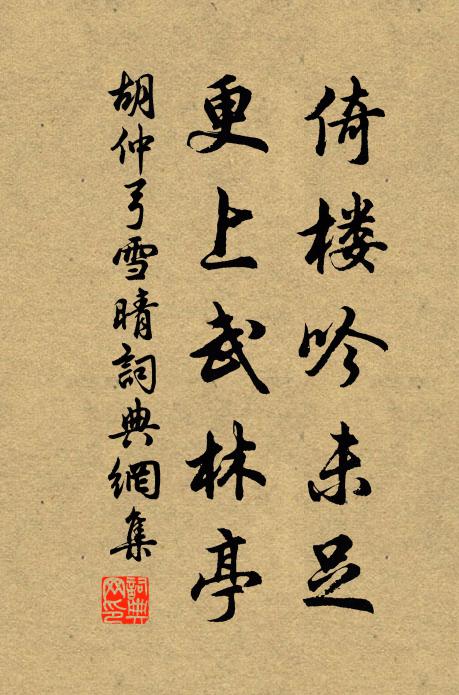 倚楼吟未足
更上武林亭
胡仲弓雪晴詞典網集
詞典
网印